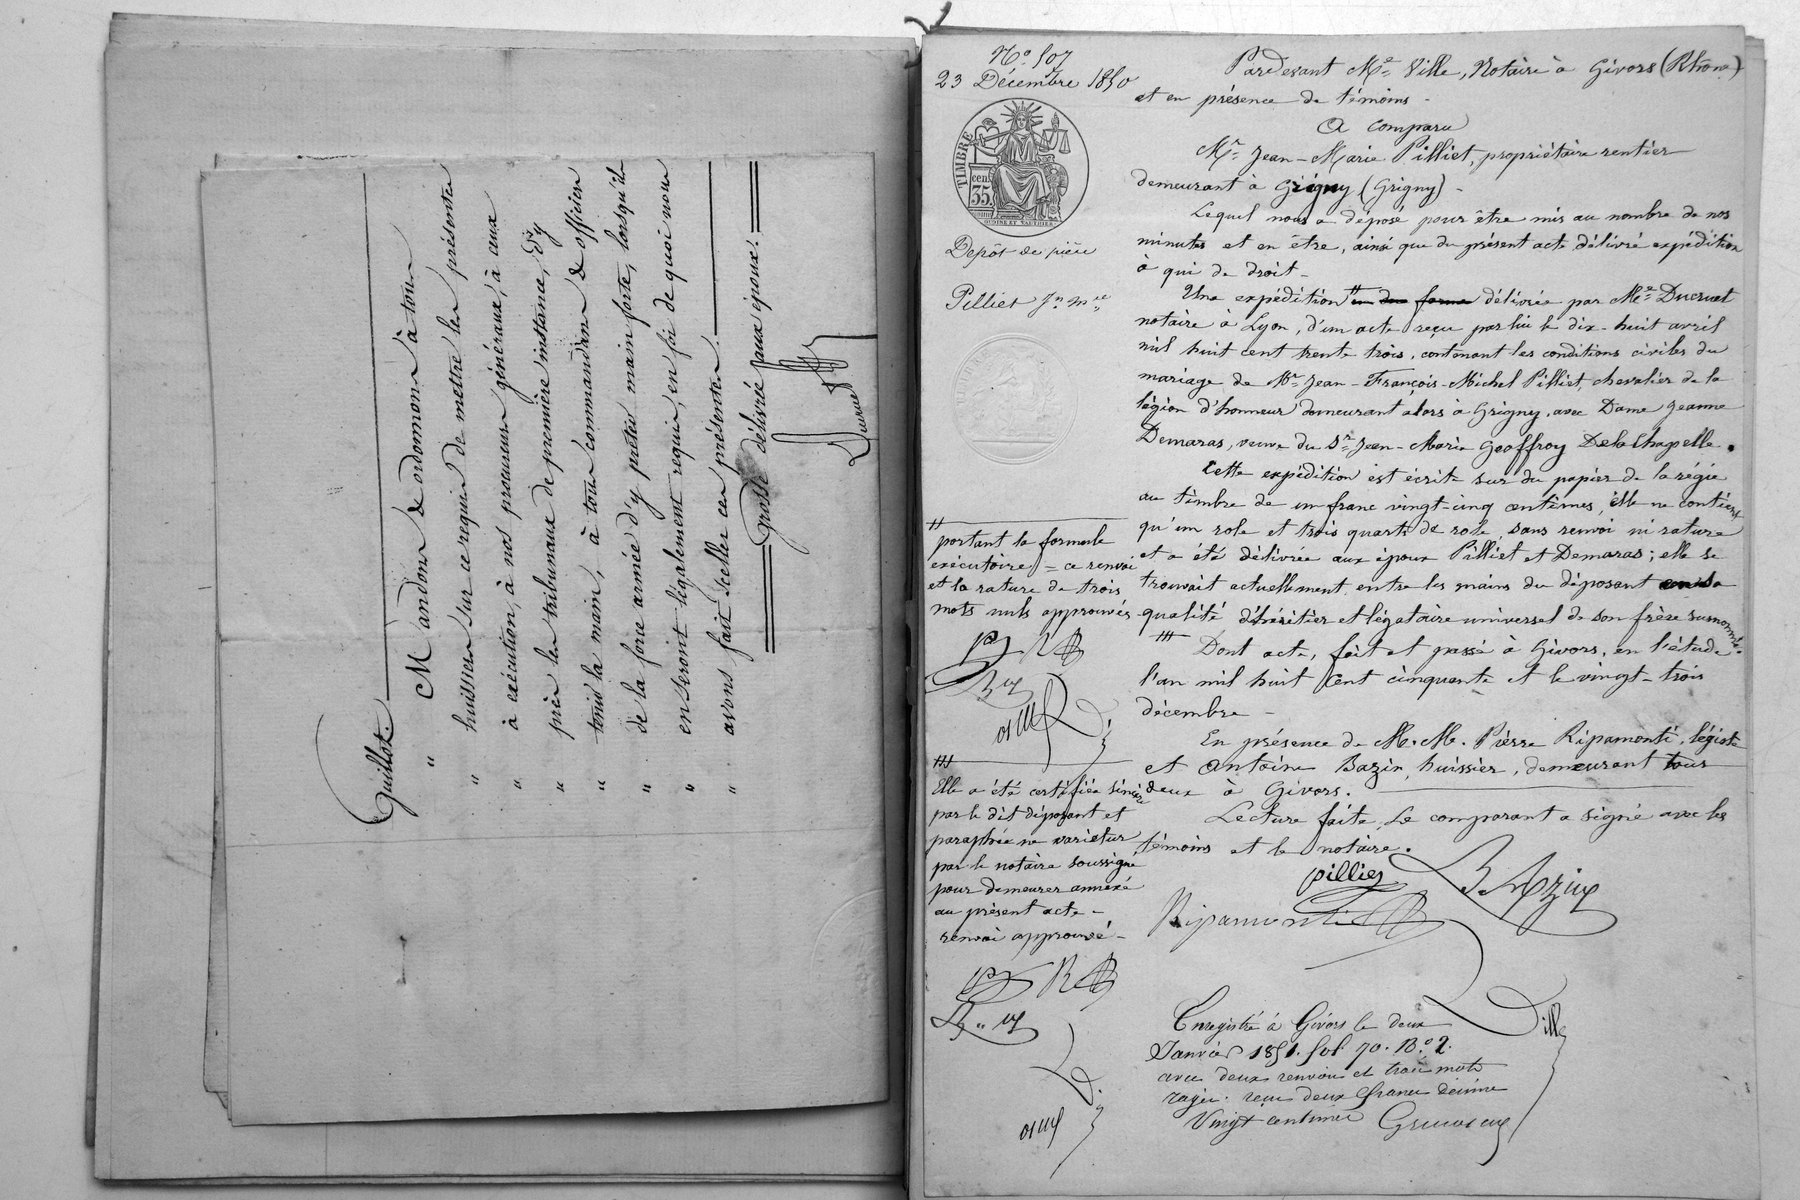 Guillot.
" Mandons & ordonnons à tous
" huissiers sur ce requis de mettre les présentes
" à exécution, à nos procureurs généraux, à ceux
" près les tribunaux de première instance, d'y
" tenir la main, à tous commandans & officiers
" de la force armée d'y prêter main forte, lorsqu'ils
" en seront légalement requis, en foi de quoi nous
" avons fait sceller ces présentes.
Grosse délivrée aux époux.
Ducruet
N° 507
23 Décembre 1850
TIMBRE
cen.
35
Depôt de pièce
Pilliet Jn. Mie
Pardevant Me. Ville, Notaire à Givors (Rhône)
et en présence de témoins -
A comparu
Mr. Jean-Marie Pilliet, propriétaire rentier
demeurant à Grigny (Grigny) -
Lequel nous a déposé pour être mis au nombre de nos
minutes et en être, ainsi que du présent acte délivré expédition
à qui de droit -
Une expédition # délivrée par Me. Ducruet
notaire à Lyon, d'un acte reçu par lui le dix-huit avril
mil huit cent trente trois, contenant les conditions civiles du
mariage de Mr. Jean-François-Michel Pilliet, chevalier de la
légion d'honneur demeurant alors à Grigny, avec Dame Jeanne
Demaras, veuve du Sr. Jean-Marie Geoffroy Delachapelle.
Cette expédition est écrite sur du papier de la régie
au timbre de un franc vingt-cinq centimes, elle ne contient
qu'un role et trois quarts de role, sans renvoi ni rature
et a été délivrée aux époux Pilliet et Demaras; elle se
trouvait actuellement entre les mains du déposant en sa
qualité d'héritier et légataire universel de son frère susnommé.
Dont acte, fait et passé à Givors, en l'étude
l'an mil huit cent cinquante et le vingt-trois
décembre -
En présence de M.M. Pierre Ripamonti, légiste
et Antoine Bazin, huissier, demeurant tous
deux à Givors.
Lecture faite, le comparant a signé avec les
témoins et le notaire.
pilliet
BAzin
Ripamonti
Ville
# portant la formule
exécutoire = ce renvoi
et la rature de trois
mots nuls approuvés
### Elle a été certifiée sincère
par le dit déposant et
paraphée ne varietur
par le notaire soussigné
pour demeurer annexé
au présent acte -
renvoi approuvé -
Enregistré à Givors le deux
Janvier 1851. fol. 70. Ro. 2.
avec deux renvois et trois mots
rayés. reçu deux francs décime
Vingt centimes